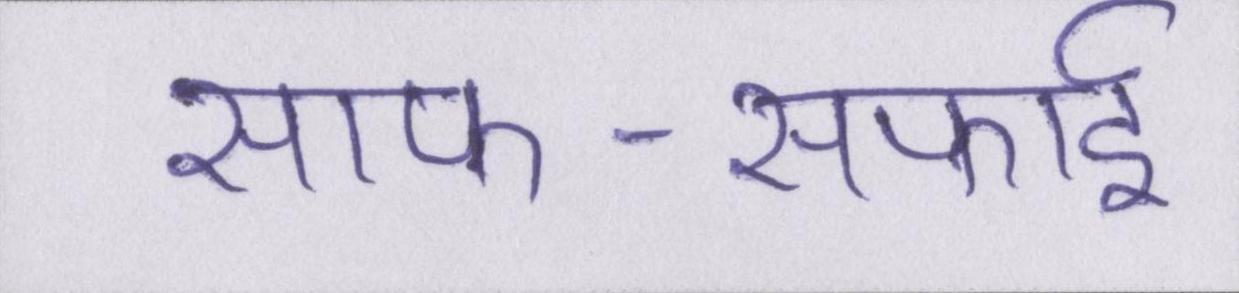 साफ-सफाई